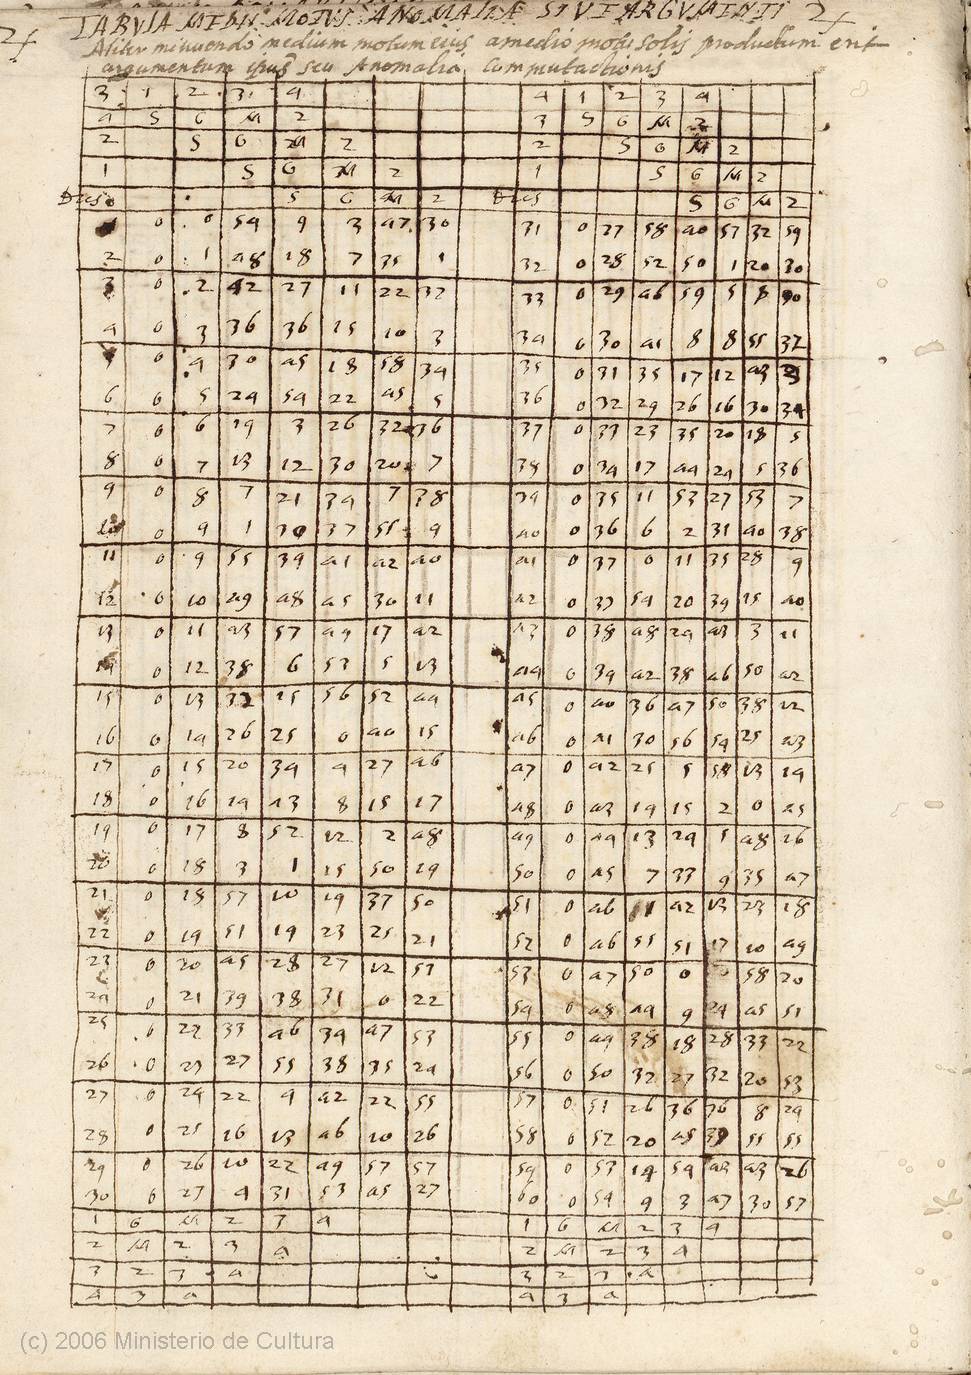 TABVLA MEDII MOTVS ANOMALIÆ SIVE ARGVMENTI ♃
♃ Aliter minuendo medium motum eius a medio motu solis productum erit
argumentum ipsius seu Anomalia Commutationis
3 1 2 3 4 4 1 2 3 4
4 S G M 2 3 S G M 2
2 S G M 2 2 S G M 2
1 S G M 2 1 S G M 2
Dies S G M 2 Dies S G M 2
1 0 0 54 9 3 47 30 31 0 27 58 40 57 32 59
2 0 1 48 18 7 35 1 32 0 28 52 50 1 20 30
3 0 2 42 27 11 22 32 33 0 29 46 59 5 8 90
4 0 3 36 36 15 10 3 34 0 30 41 8 8 55 32
5 0 4 30 45 18 58 34 35 0 31 35 17 12 43 3
6 0 5 24 54 22 45 5 36 0 32 29 26 16 30 34
7 0 6 19 3 26 32 36 37 0 33 23 35 20 18 5
8 0 7 13 12 30 20 7 38 0 34 17 44 24 5 36
9 0 8 7 21 34 7 38 39 0 35 11 53 27 53 7
10 0 9 1 30 37 55 9 40 0 36 6 2 31 40 38
11 0 9 55 39 41 42 40 41 0 37 0 11 35 28 9
12 0 10 49 48 45 30 11 42 0 37 54 20 39 15 40
13 0 11 43 57 49 17 42 43 0 38 48 29 43 3 11
14 0 12 38 6 53 5 13 44 0 39 42 38 46 50 42
15 0 13 32 15 56 52 44 45 0 40 36 47 50 38 12
16 0 14 26 25 0 40 15 46 0 41 30 56 54 25 43
17 0 15 20 34 4 27 46 47 0 42 25 5 58 13 14
18 0 16 14 43 8 15 17 48 0 43 19 15 2 0 45
19 0 17 8 52 12 2 48 49 0 44 13 24 5 48 16
20 0 18 3 1 15 50 19 50 0 45 7 33 9 35 47
21 0 18 57 10 19 37 50 51 0 46 1 42 13 23 18
22 0 19 51 19 23 25 21 52 0 46 55 51 17 10 49
23 0 20 45 28 27 12 52 53 0 47 50 0 58 20
24 0 21 39 38 31 0 22 54 0 48 44 9 24 45 51
25 0 22 33 46 34 47 53 55 0 49 38 18 28 33 22
26 0 23 27 55 38 35 24 56 0 50 32 27 32 20 53
27 0 24 22 4 42 22 55 57 0 51 26 36 36 8 24
28 0 25 16 13 46 10 26 58 0 52 20 45 39 55 55
29 0 26 10 22 49 57 57 59 0 53 14 54 43 43 26
30 0 27 4 31 53 45 27 60 0 54 9 3 47 30 57
1 G M 2 3 4 1 G M 2 3 4
2 M 2 3 4 2 M 2 3 4
3 2 3 4 3 2 3 4
4 3 4 4 3 4
(c) 2006 Ministerio de Cultura